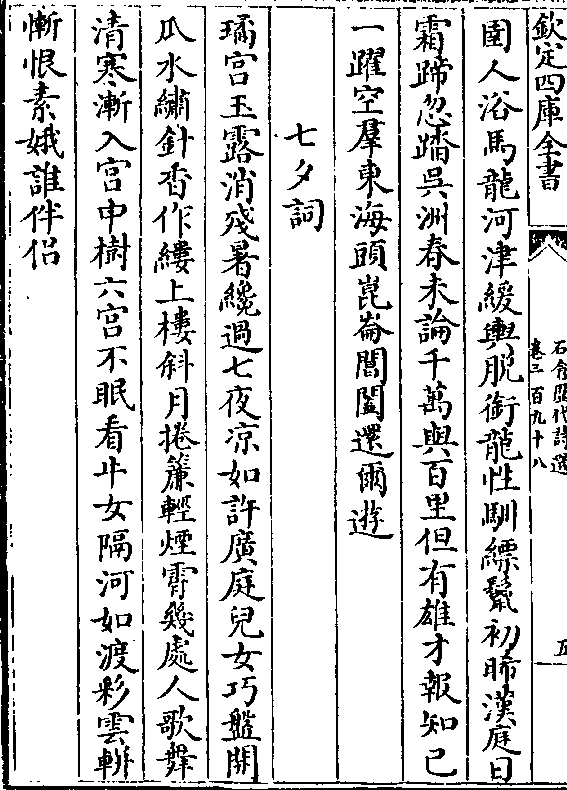 欽定四庫全書
石倉歴代詩選
卷三百九十八
五
圉人浴馬龍河津緩輿脱銜龍性馴縹鬉初晞漢庭日
霜蹄忽踏吳洲春未論千萬與百里但有雄才報知己
一躍空羣東海頭崑崙閶闔還爾遊
七夕詞
璚宮玉露消殘暑纔過七夜凉如許廣庭兒女巧盤開
瓜水繡針香作縷上樓斜月捲簾輕煙霄幾處人歌舞
清寒漸入宫中樹六宫不眠看牛女隔河如渡彩雲軿
慚恨素娥誰伴侣